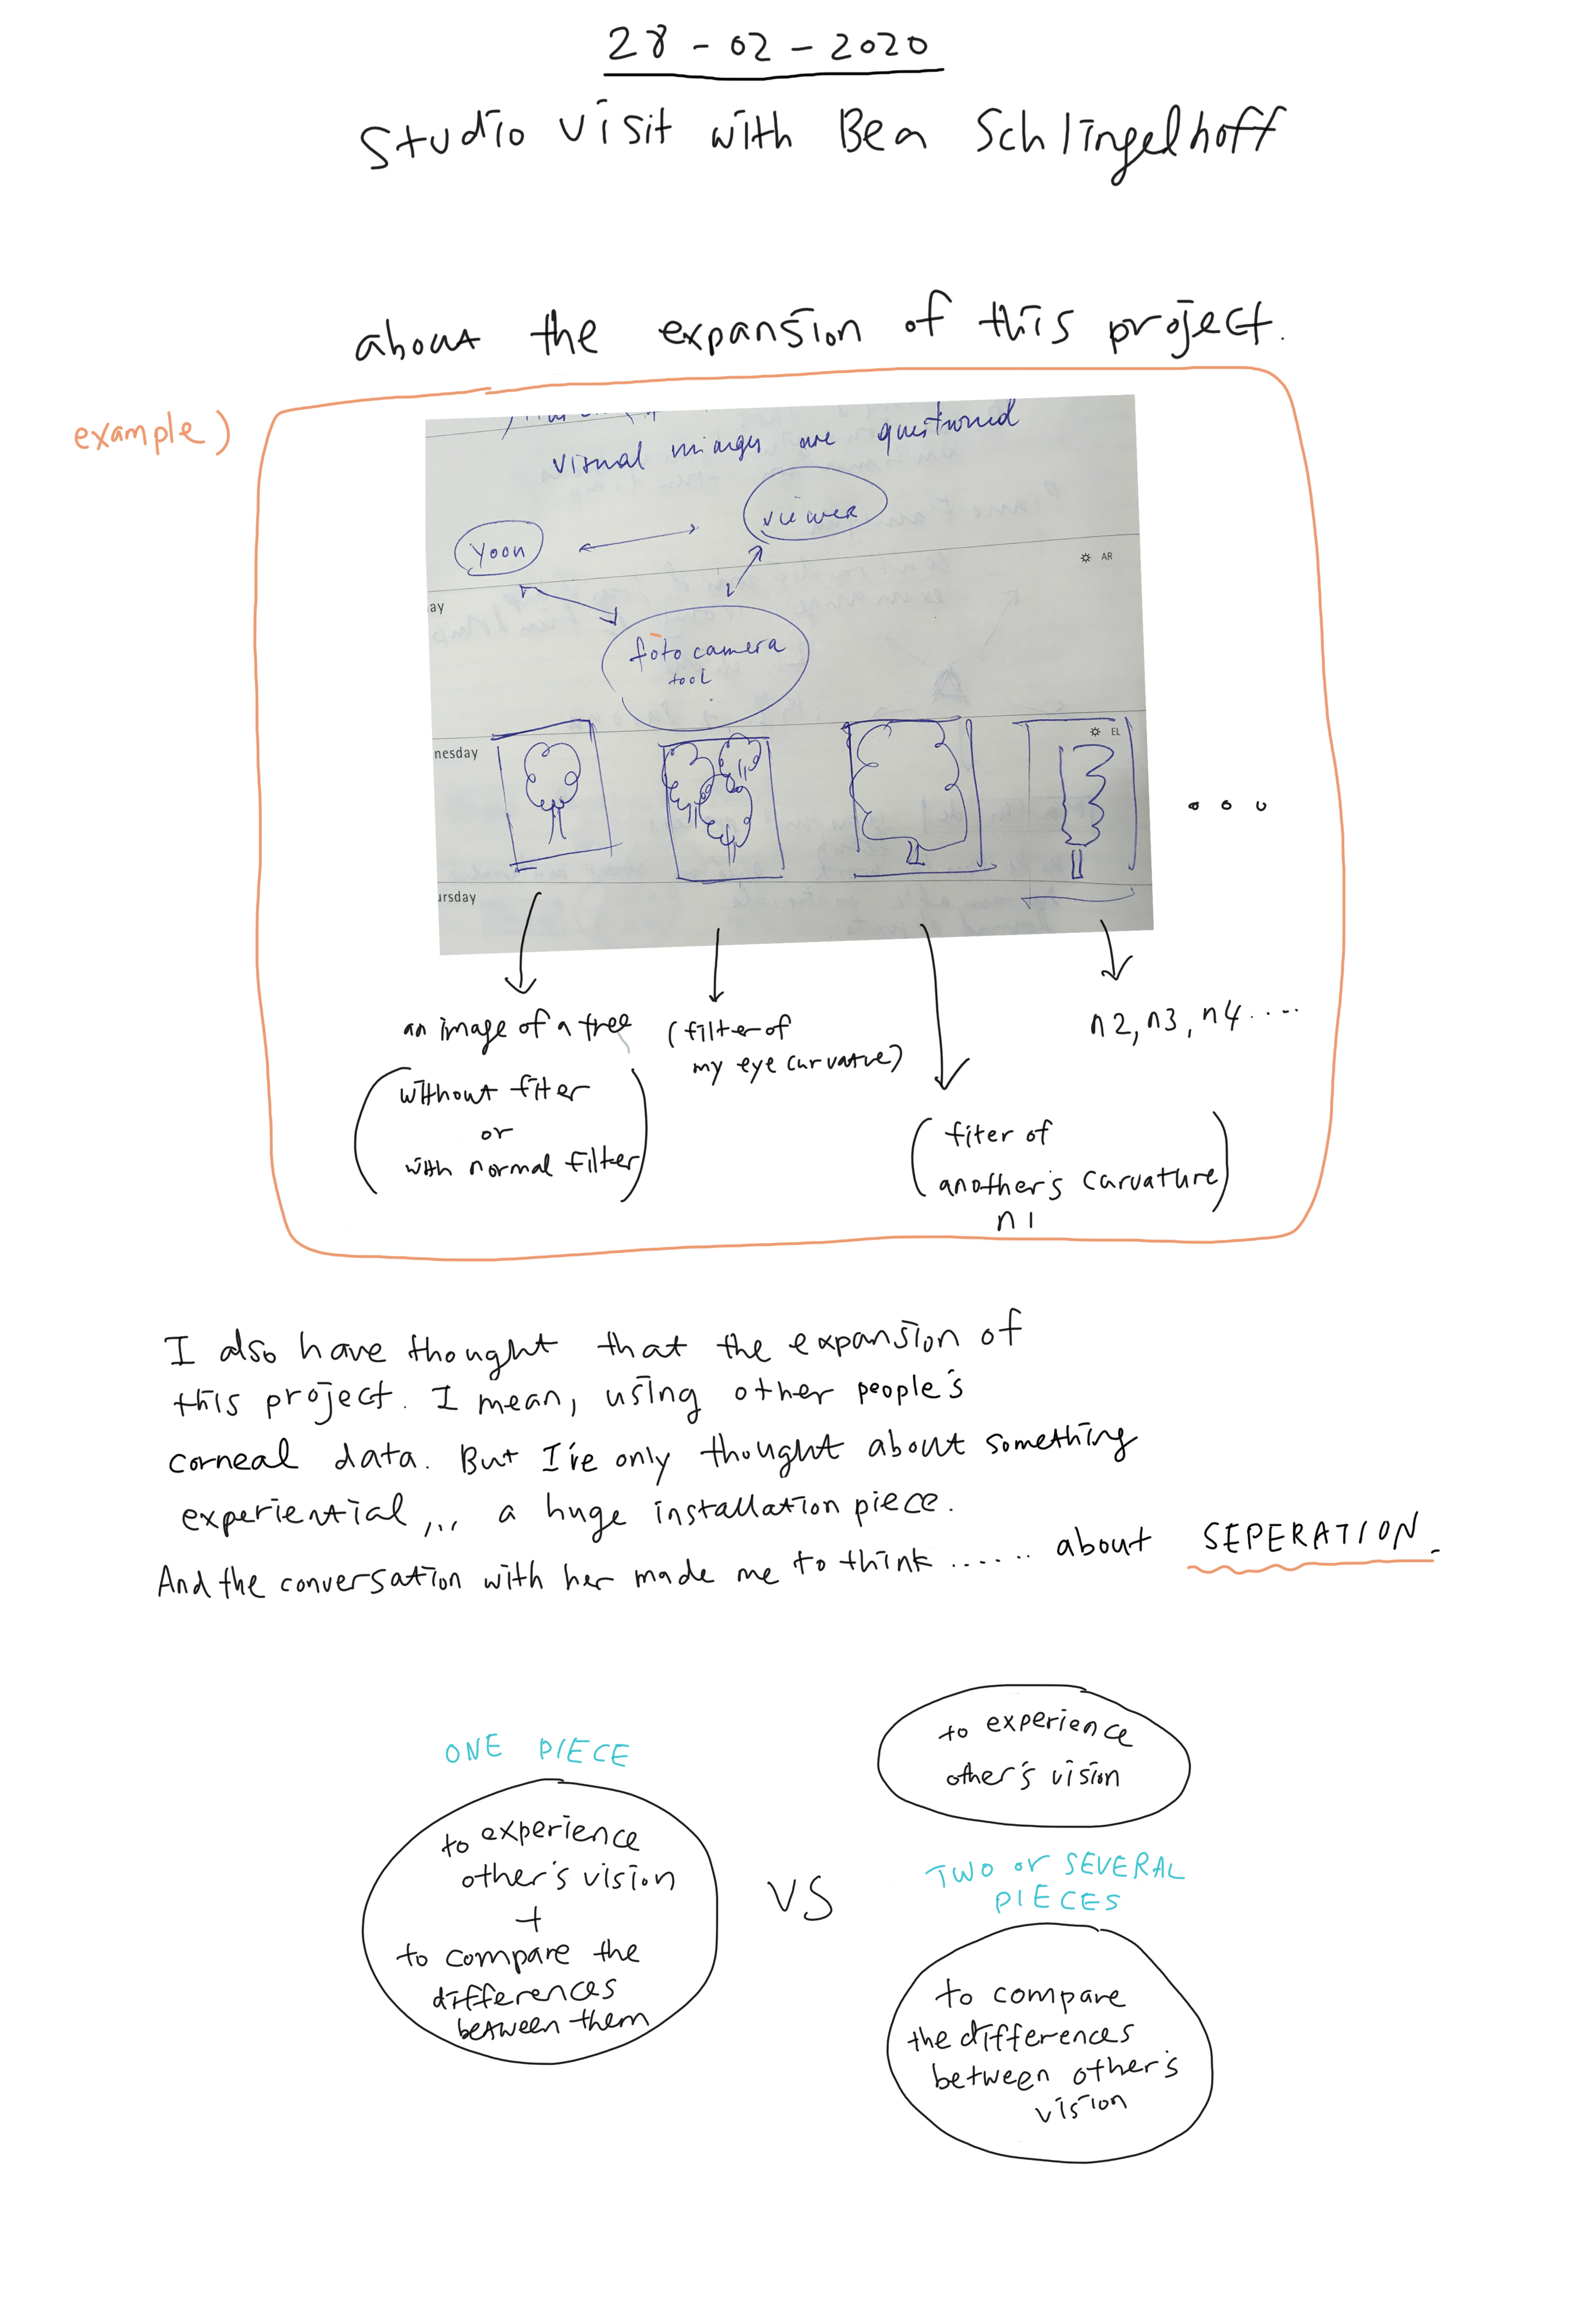 28 - 02 - 2020
Studio visit with Bea Schlingelhoff
about the expansion of this project.
example)
visual images are questioned
Yoon
viewer
AR
ay
foto camera
tool
nesday
EL
ursday
an image of a tree
(without fiter
or
with normal filter)
(filter of
my eye curvature)
(fiter of
another's carvature)
n1
n2, n3, n4 ....
I also have thought that the expansion of
this project. I mean, using other people's
corneal data. But I've only thought about something
experiential ,,, a huge installation piece.
And the conversation with her made me to think ...... about SEPERATION.
ONE PIECE
to experience
other's vision
+
to compare the
differences
between them
VS
to experience
other's vision
TWO or SEVERAL
PIECES
to compare
the differences
between other's
vision